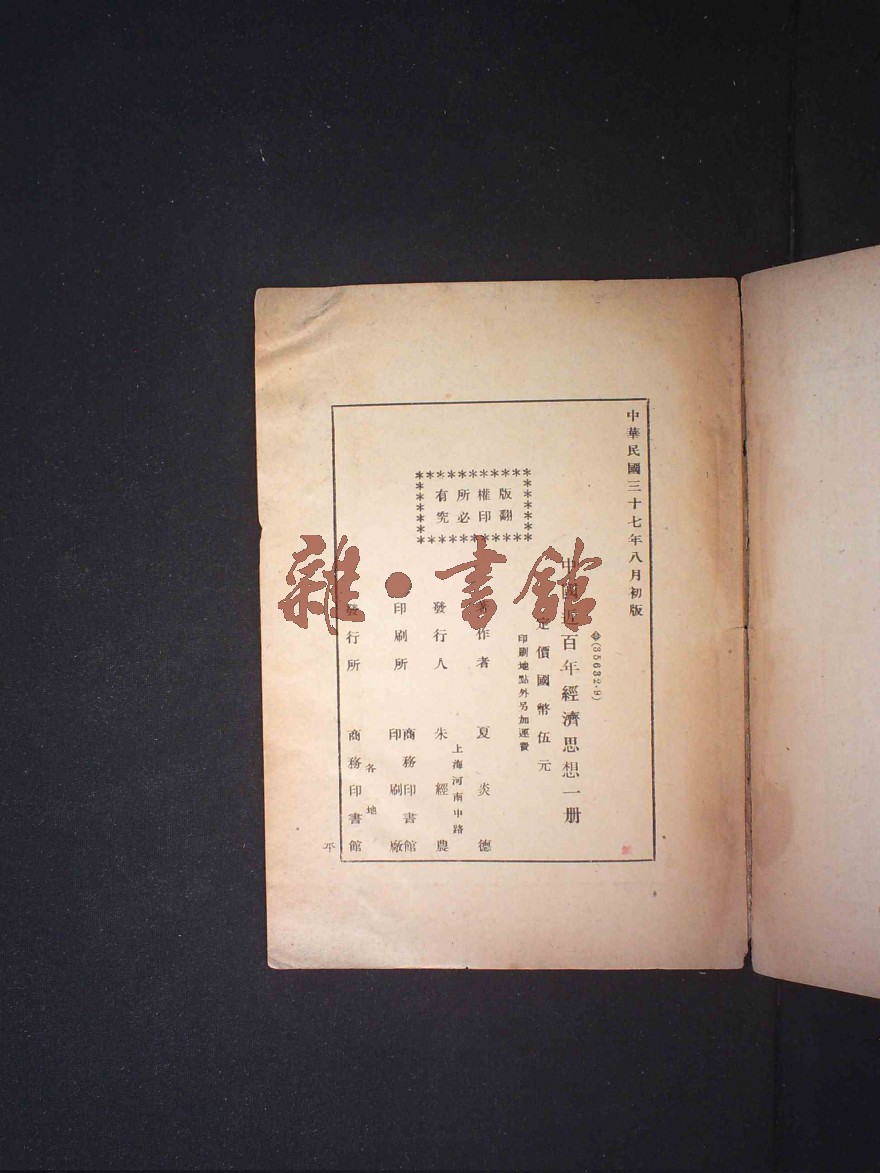 中華民國三十七年八月初版
(35632·9)
中國近百年經濟思想一册
定價國幣伍元
印刷地點外另加運費
版權所有
翻印必究
著作者 夏炎德
上海河南中路
發行人 朱經農
印刷所 商務印書館
印刷廠
各地
發行所 商務印書館
平
雜·書館